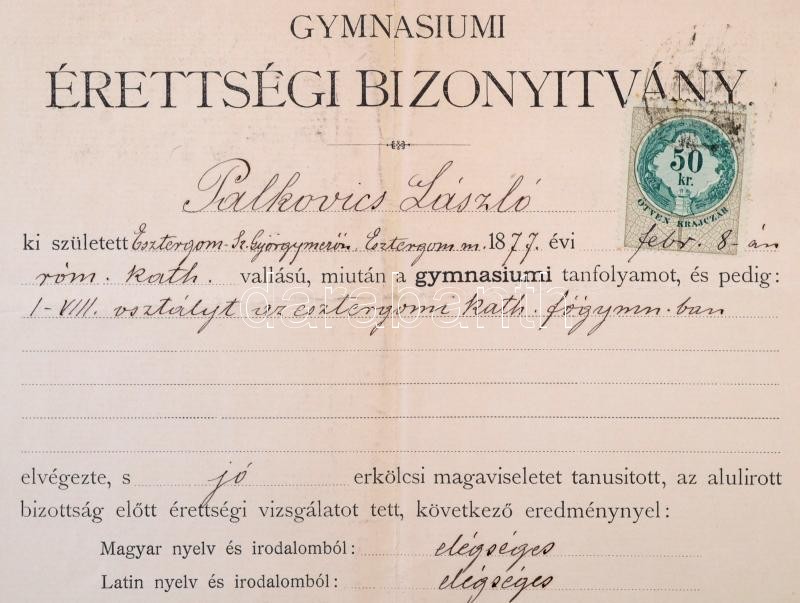 GYMNASIUMI
ÉRETTSÉGI BIZONYITVÁNY.
50
kr.
ÖTVEN KRAJCZÁR
Palkovics László
ki született Esztergom-Sz.Györgymezőn Esztergom m. 1877 évi febr. 8-án
róm. kath. vallású, miután a gymnasiumi tanfolyamot, és pedig:
I-VIII. osztályt az esztergomi kath. főgymn.ban
darabanth
elvégezte, s jó erkölcsi magaviseletet tanusitott, az alulirott
bizottság előtt érettségi vizsgálatot tett, következő eredménynyel:
Magyar nyelv és irodalomból: elégséges
Latin nyelv és irodalomból: elégséges